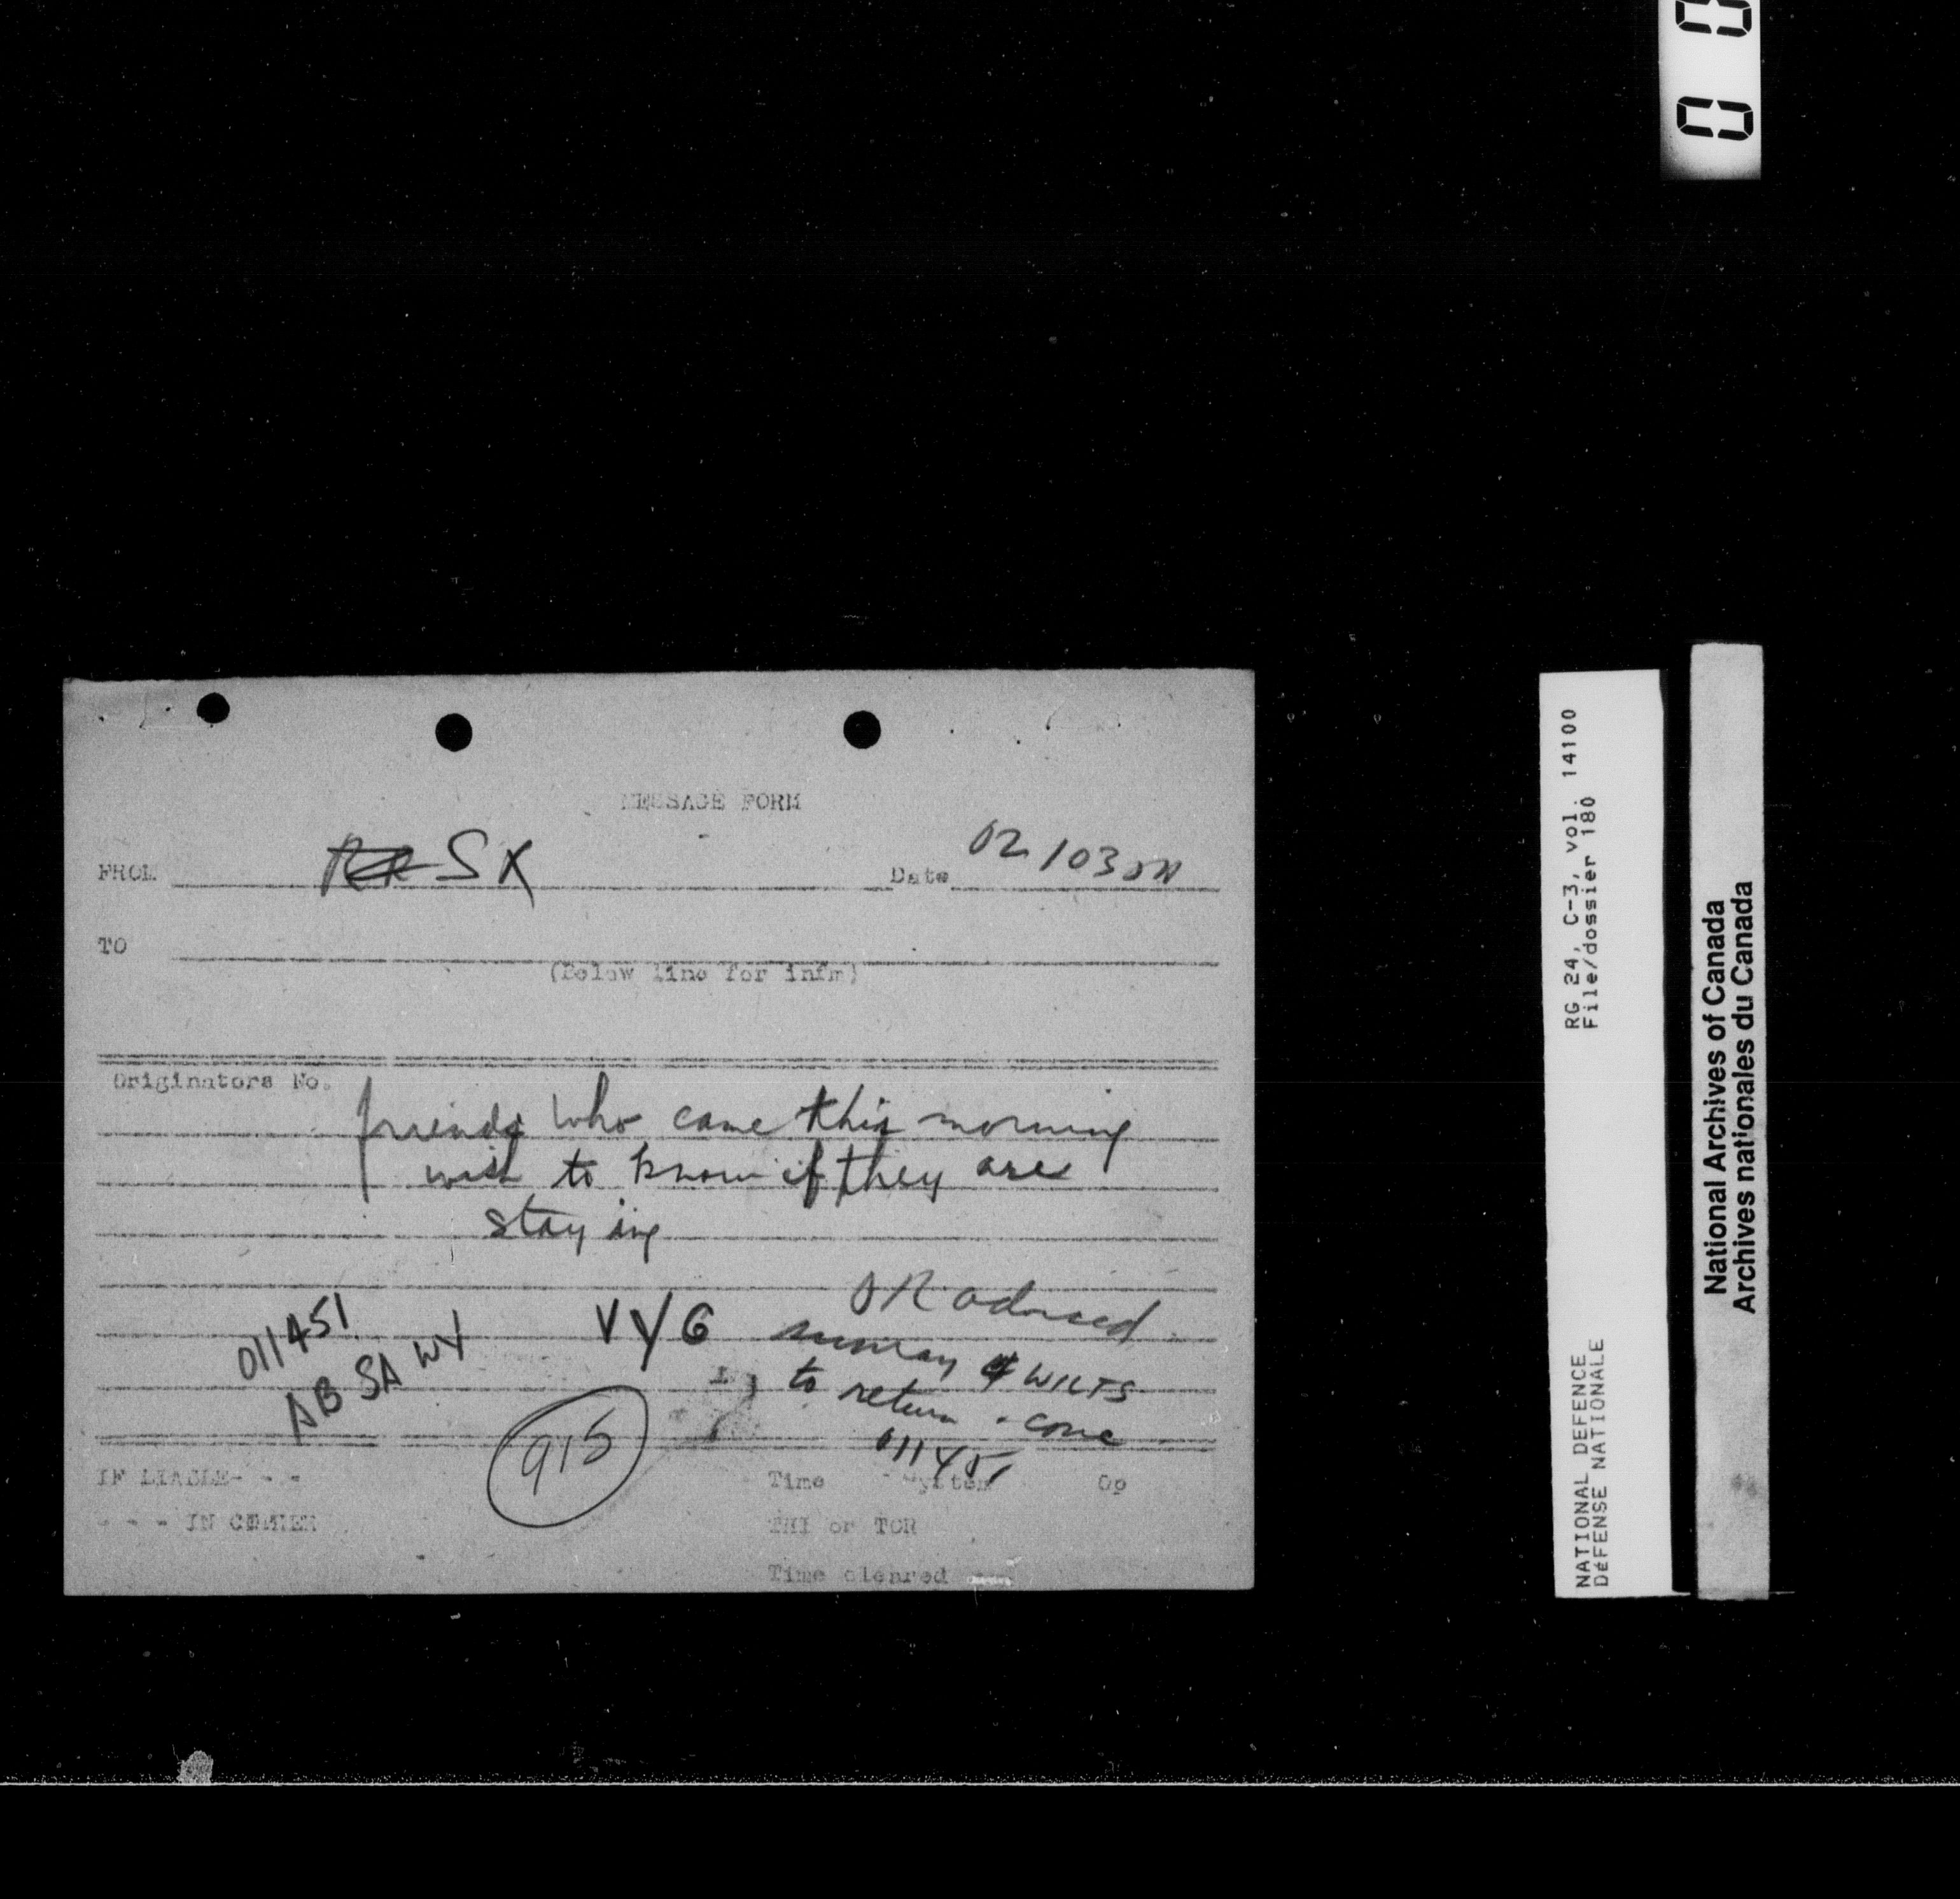 0 0
MESSAGE FORM
FROM SX Date 021030
TO
(Below line for infm)
Originators No.
friends who came this morning
wish to know if they are
staying
011451
AB SA WY
VY6
OR advised
& WILTS
to return
011451
915
IF LIABLE - - -
- - - IN CIPHER
Time System Op
THI or TOR
Time cleared
RG 24, C-3, vol. 14100
File/dossier 180
NATIONAL DEFENCE
DéFENSE NATIONALE
National Archives of Canada
Archives nationales du Canada